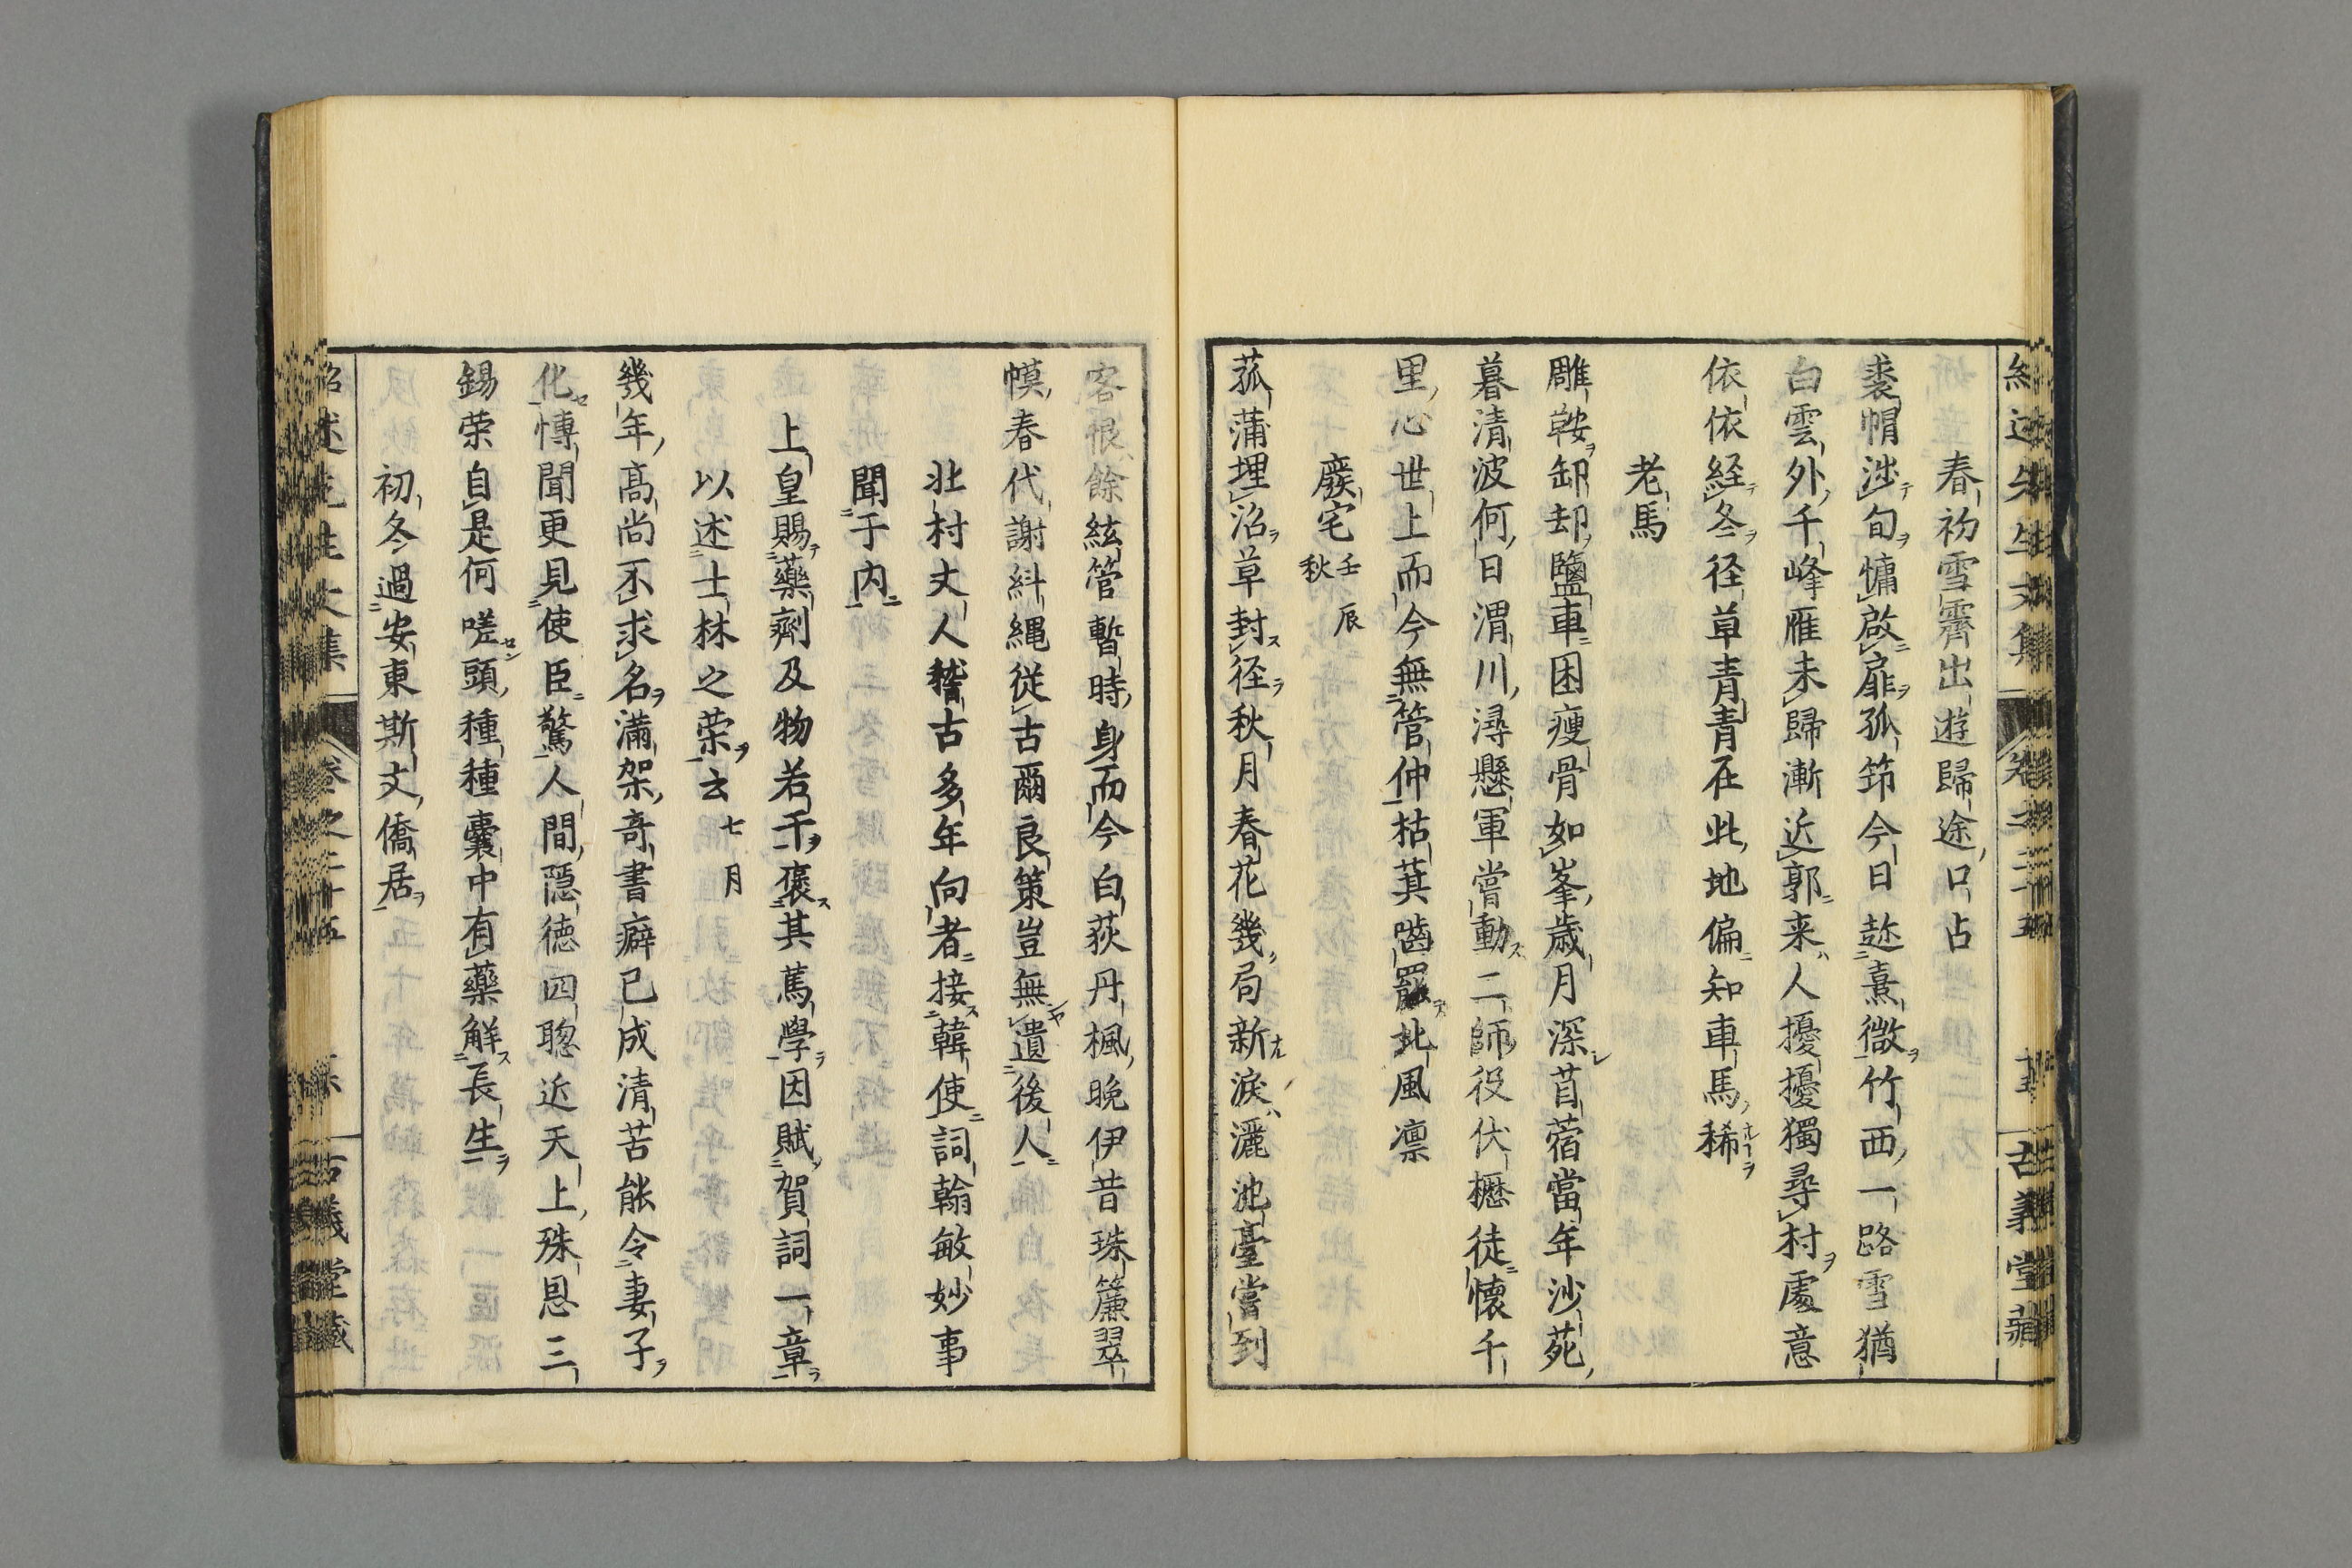 春初雪霽出遊歸途口占
裘帽涉旬慵啟扉孤筇今日趂熹微竹西一路雪猶
白雲外千峰雁未歸漸近郭来人擾擾獨尋村處意
依依経冬径草青青在此地偏知車馬稀
老馬
雕鞍卸却鹽車困瘦骨如峯歳月深苜蓿當年沙苑
暮清波何日渭川潯懸軍嘗動二師役伏櫪徒懷千
里心世上而今無管仲枯萁嚙罷北風凛
廢宅 壬辰秋
菰蒲埋沼草封径秋月春花幾局新淚灑池臺嘗到
客恨餘絃管暫時身而今白荻丹楓晚伊昔珠簾翠
幙春代謝糾縄従古爾良策豈無遺後人
北村丈人稽古多年向者接韓使詞翰敏妙事
聞于内
上皇賜藥劑及物若干褒其篤學因賦賀詞一章
以述士林之荣云 七月
幾年高尚不求名満架奇書癖已成清苦能令妻子
化博聞更見使臣驚人間隠徳四聰近天上殊恩三
錫荣自是何嗟頭種種囊中有藥解長生
初冬過安東斯文僑居
紹述先生文集 卷之二十五 古義堂藏